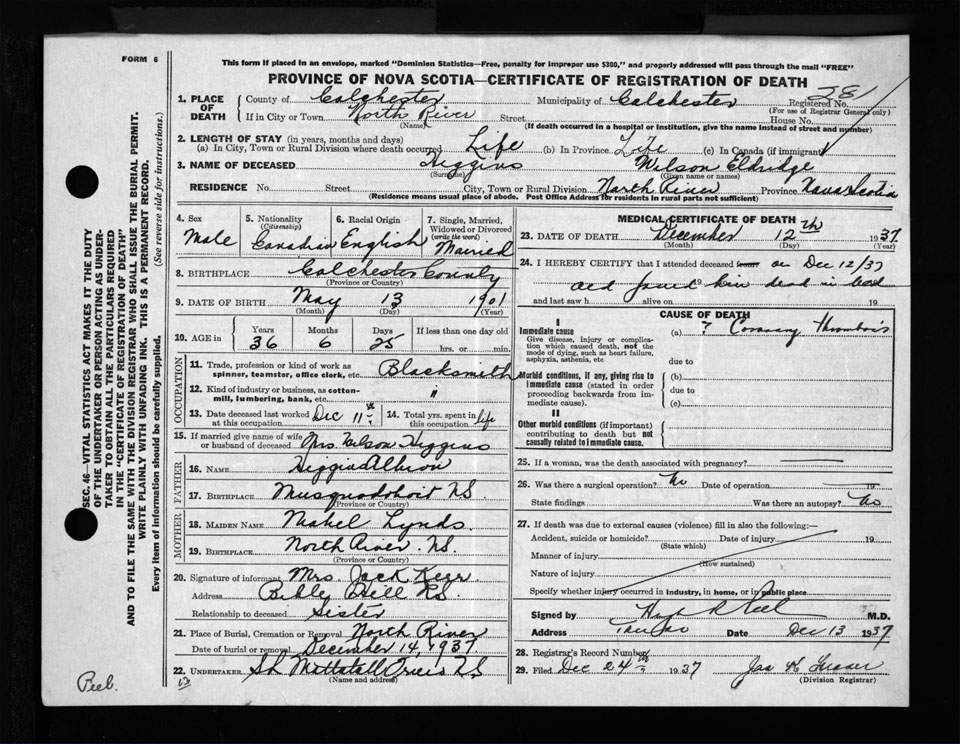 FORM 6
This form if placed in an envelope, marked "Dominion Statistics—Free, penalty for improper use $300," and properly addressed will pass through the mail "FREE"
PROVINCE OF NOVA SCOTIA—CERTIFICATE OF REGISTRATION OF DEATH
1. PLACE OF DEATH
County of Colchester Municipality of Colchester Registered No. 28
(For use of Registrar General only)
If in City or Town North River Street House No.
(Name) (If death occurred in a hospital or institution, give the name instead of street and number)
2. LENGTH OF STAY (in years, months and days)
(a) In City, Town or Rural Division where death occurred Life (b) In Province Life (c) In Canada (if immigrant)
3. NAME OF DECEASED Higgins Wilson Eldridge
(Surname) (Given name or names)
RESIDENCE No. Street City, Town or Rural Division North River Province Nova Scotia
(Residence means usual place of abode. Post Office Address for residents in rural parts not sufficient)
4. Sex Male
5. Nationality (Citizenship) Canadian
6. Racial Origin English
7. Single, Married, Widowed or Divorced (write the word) Married
8. BIRTHPLACE Colchester County
(Province or Country)
9. DATE OF BIRTH May 13 1901
(Month) (Day) (Year)
10. AGE in Years Months Days If less than one day old
36 6 25 hrs. or min.
OCCUPATION
11. Trade, profession or kind of work as spinner, teamster, office clerk, etc. Blacksmith
12. Kind of industry or business, as cotton-mill, lumbering, bank, etc. "
13. Date deceased last worked at this occupation Dec 11th
14. Total yrs. spent in this occupation life
15. If married give name of wife or husband of deceased Mrs. Wilson Higgins
FATHER
16. NAME Higgins Albion
17. BIRTHPLACE Musquodoboit N.S.
(Province or Country)
MOTHER
18. MAIDEN NAME Mabel Lynds
19. BIRTHPLACE North River N.S.
(Province or Country)
20. Signature of informant Mrs. Jack Keer
Address Bibly Hill N.S.
Relationship to deceased Sister
21. Place of Burial, Cremation or Removal North River
Date of burial or removal December 14, 1937
22. UNDERTAKER
(Name and address)
MEDICAL CERTIFICATE OF DEATH
23. DATE OF DEATH December 12th 1937
(Month) (Day)
24. I HEREBY CERTIFY that I attended deceased from on Dec 12/37
and found him dead in bed 19
and last saw h alive on 19
CAUSE OF DEATH
I
Immediate cause (a) ? Coronary Thrombosis
Give disease, injury or complication which caused death, not the mode of dying, such as heart failure, asphyxia, asthenia, etc
due to
Morbid conditions, if any, giving rise to immediate cause (stated in order proceeding backwards from immediate cause).
(b)
due to
(c)
II
Other morbid conditions (if important) contributing to death but not causally related to immediate cause.
25. If a woman, was the death associated with pregnancy?
26. Was there a surgical operation? No Date of operation 19
State findings Was there an autopsy? No
27. If death was due to external causes (violence) fill in also the following:—
Accident, suicide or homicide? Date of injury 19
(State which)
Manner of injury
(How sustained)
Nature of injury
Specify whether injury occurred in industry, in home, or in public place
Signed by M.D.
Address Truro Date Dec 13 1937
28. Registrar's Record Number
29. Filed Dec 24th 1937
(Division Registrar)
SEC. 46—VITAL STATISTICS ACT MAKES IT THE DUTY
OF THE UNDERTAKER OR PERSON ACTING AS UNDER-
TAKER TO OBTAIN ALL THE PARTICULARS REQUIRED
IN THE "CERTIFICATE OF REGISTRATION OF DEATH"
AND TO FILE THE SAME WITH THE DIVISION REGISTRAR WHO SHALL ISSUE THE BURIAL PERMIT.
WRITE PLAINLY WITH UNFADING INK. THIS IS A PERMANENT RECORD.
Every item of information should be carefully supplied. (See reverse side for instructions.)